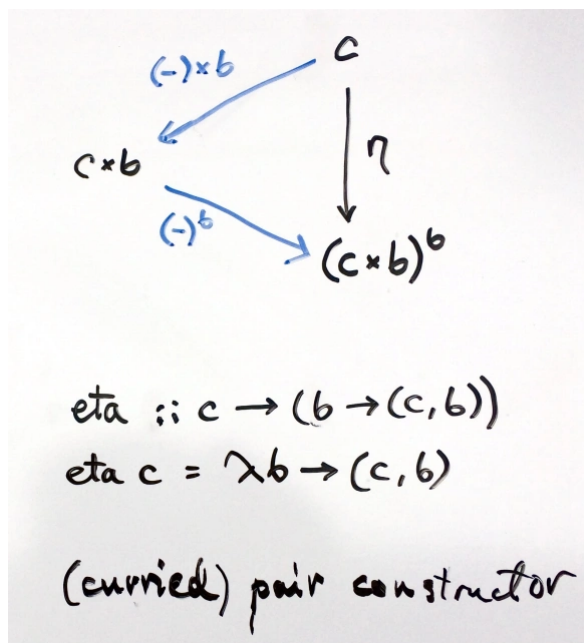 c
(-)×b
c×b
η
(-)ᵇ
(c×b)ᵇ
eta :: c → (b → (c, b))
eta c = λb → (c, b)
(curried) pair constructor